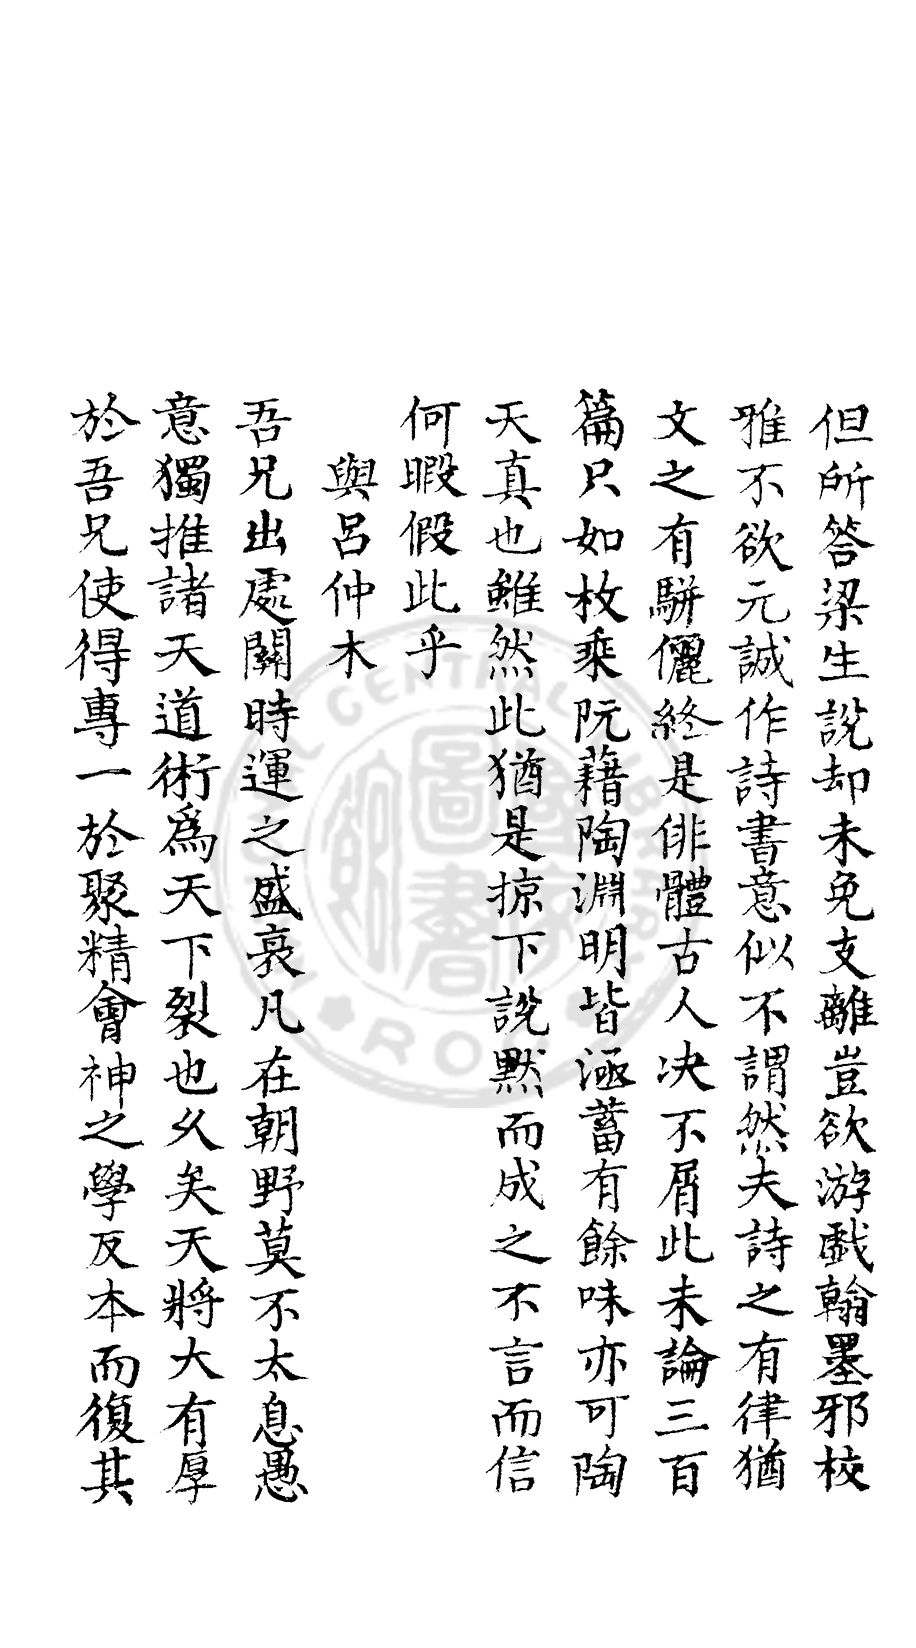 但所答梁生說却未免支離豈欲游戲翰墨邪校
雅不欲元誠作詩書意似不謂然夫詩之有律猶
文之有駢儷終是俳體古人决不屑此未論三百
篇只如枚乘阮藉陶淵明皆涵蓄有餘味亦可陶
天真也雖然此猶是掠下說默而成之不言而信
何暇假此乎
與呂仲木
吾兄出處關時運之盛衰凡在朝野莫不太息愚
意獨推諸天道術為天下裂也久矣天將大有厚
於吾兄使得專一於聚精會神之學反本而復其
NATIONAL CENTRAL LIBRARY
ROC
國家圖書館